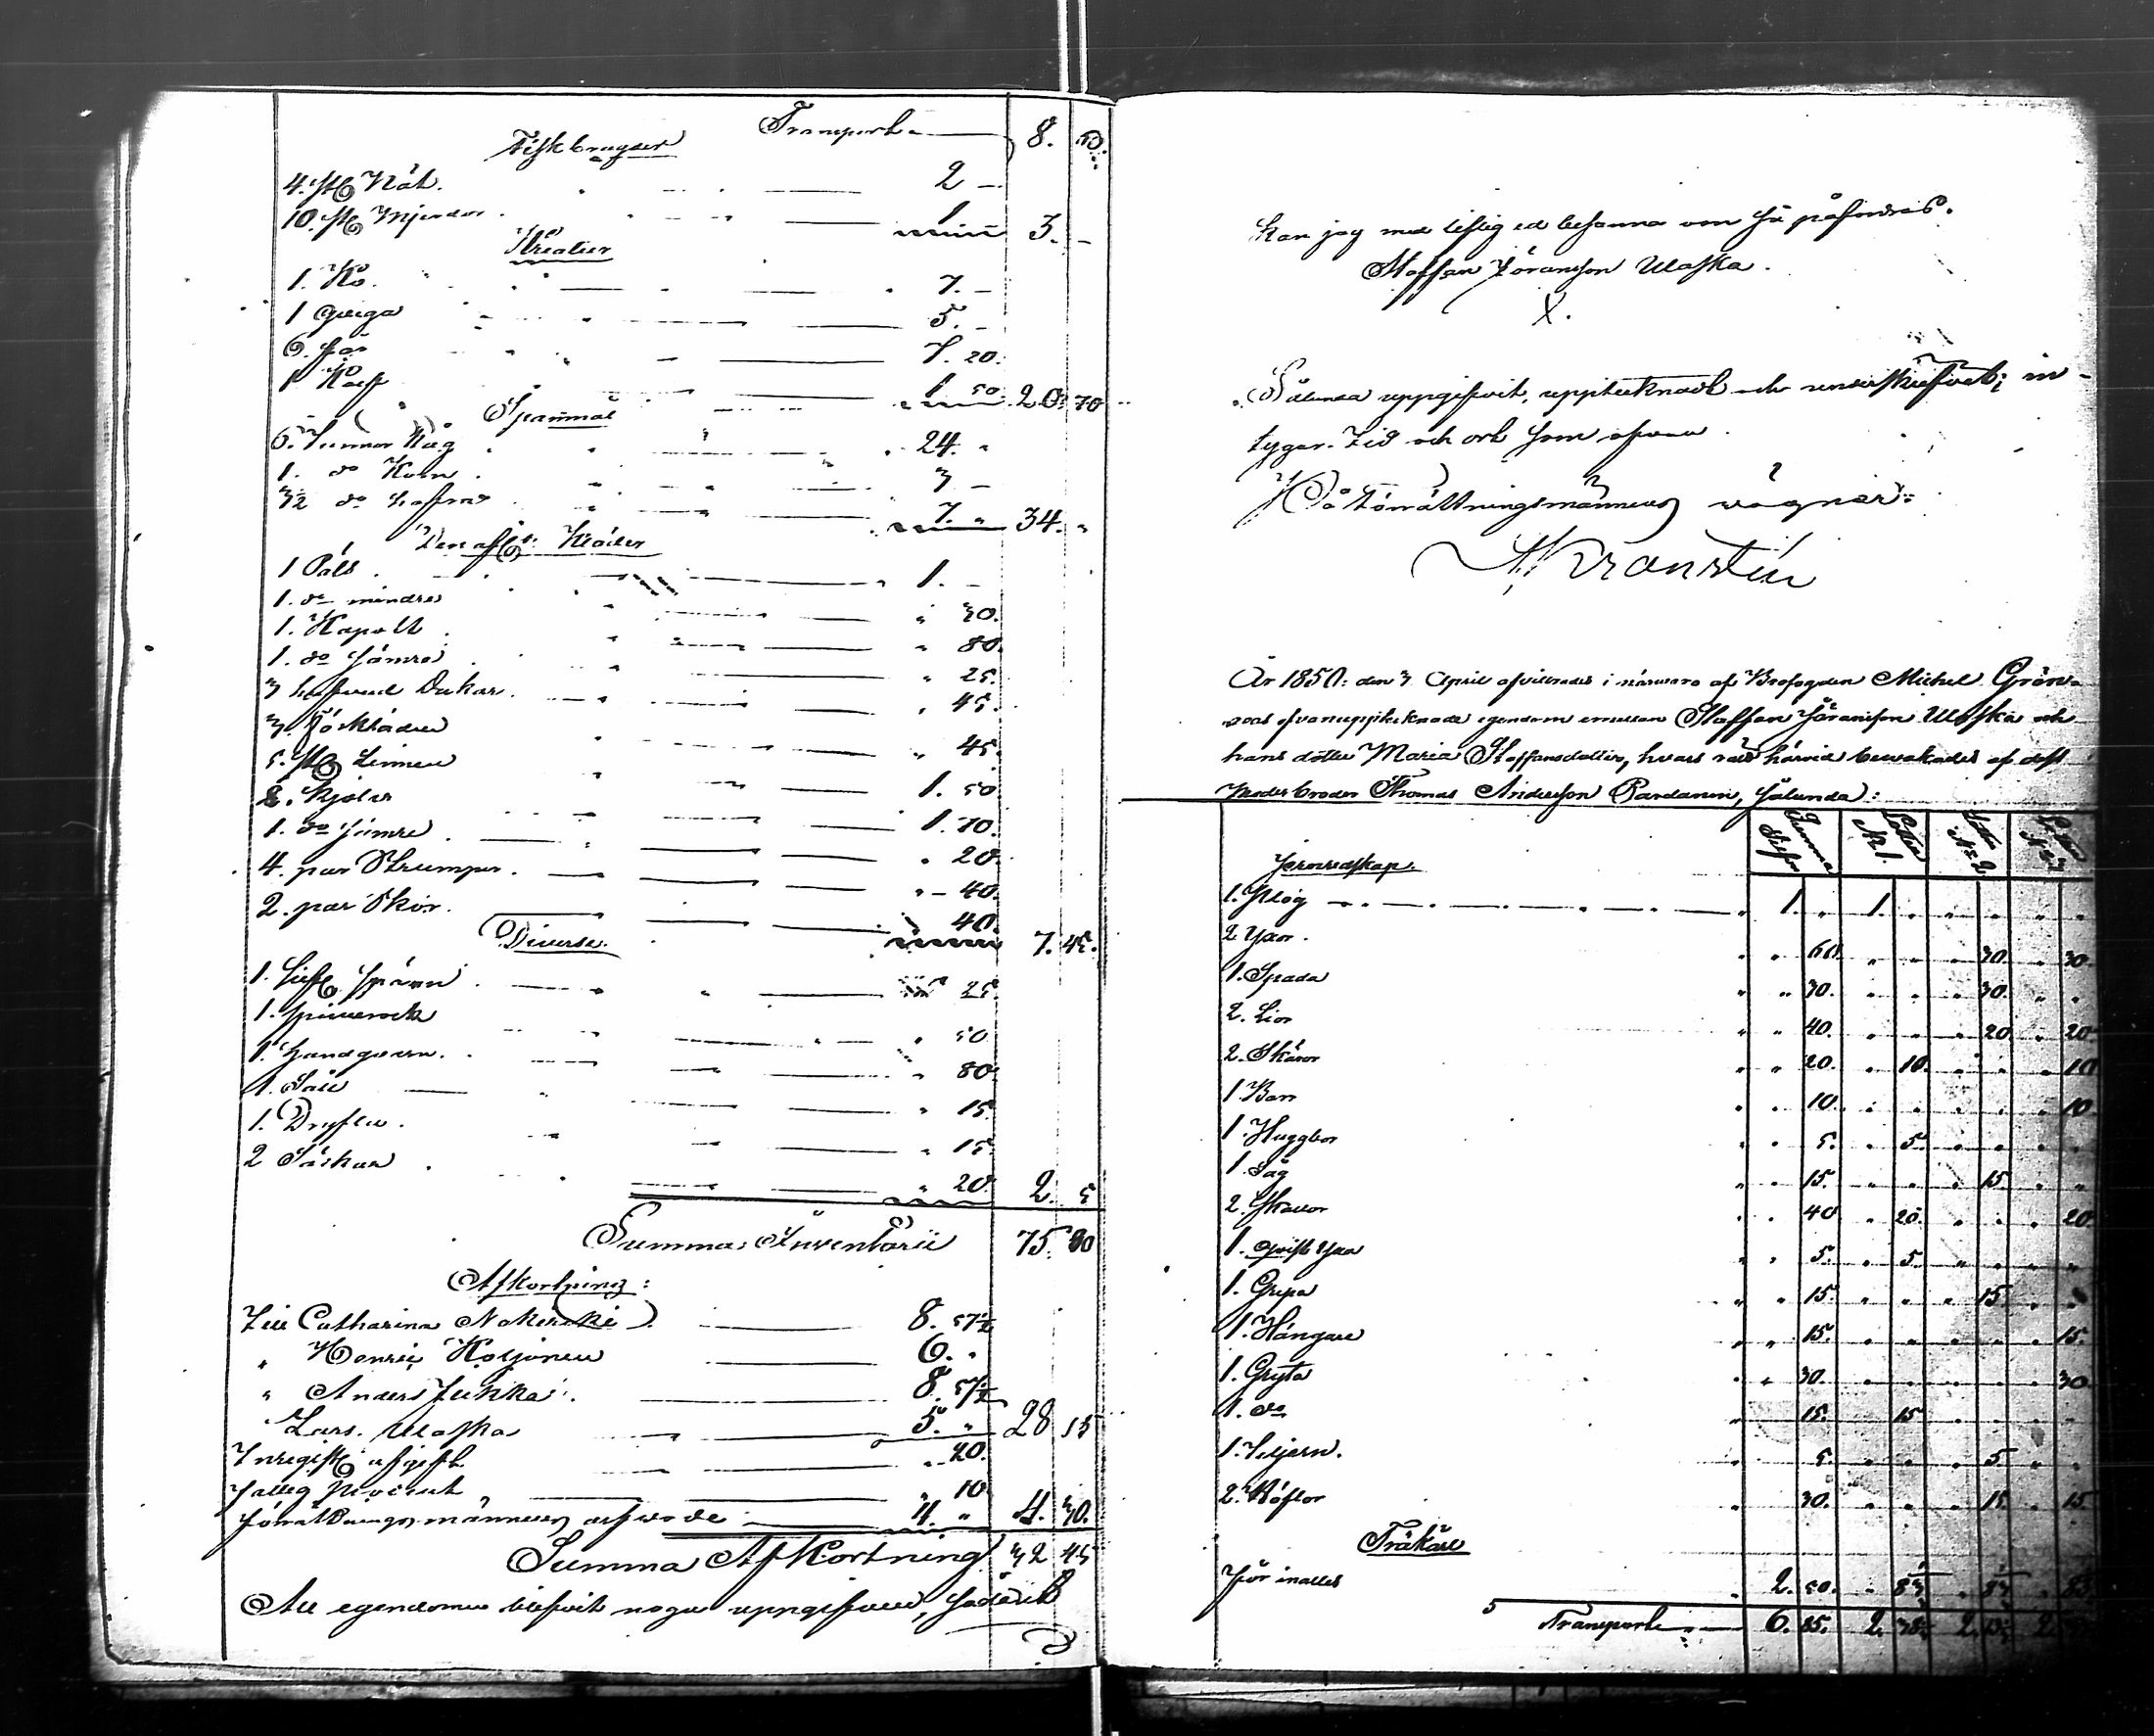 Transport 8.
Fiskbragder
4. st Nät. 2 —
10. st Mjerdor 1 3. —
Kreatur
1. Ko. 7. —
1 Qviga 5. —
6. får 7. 20.
1 Kalf 1 50. 20. 70
Spanmål
6. Tunnor Råg 24.
1. do Korn 3 —
3½ do hafra 7. " 34. "
Den afl. Kläder
1 Päls 1. —
1. do mindre " 30.
1. Kapott " 80.
1. do sämre " 25.
3 hufvud Dukar. " 45.
3. Förkläden " 45.
5. st Linnen 1. 50
2. Kjolar 1. 70.
1. do sämre " 20.
4. par Strumpor. " 40.
2. par Skor. 40. 7. 45.
Diverse.
1. spann 25.
1. spinnrock " 50
1. handqvarn. " 80.
1. Såll " 15.
1. Dryftu " 15.
2 Säckar " 20. 2. 5
Summa Inventarii 75. 80
Afkortning:
Till Catharina 8. 57½
" Henric Koljonen 6. "
" Anders Jukka 8. 57½
" Lars. Ulaska 5. " 28 15
Inregist afgift " 20.
Fattig Procent " 10
Förrättningsmännens arfvode 4. " 4. 30.
Summa Afkortning 32 45
All egendomen blifvit noga uppgifven, sådant
kan jag med liflig ed besanna om så påfordras.
Staffan Jöransson Ulaska.
X.
Sålunda uppgifvit, upptecknadt och underskrifvit; in-
tygar. Tid och ort som ofvan.
På Förrättningsmännens vägnar:
A. Kranstén
År 1850. den 3 April afvittrades i närvaro af Brofogden Michel Grön-
roos ofvanupptecknade egendom emellan Staffan Jöransson Ulaska och
hans dotter Maria Staffansdotter, hvars rätt härvid bevakades af dess
Moderbroder Thomas Andersson Pardanen, sålunda:
Summa Silfer Lotten N: 1. Lotten N: 2 Lotten N: 3
Jernredskap
1. Plog 1. " 1. " " " " "
2 Yxor. " 60. " " " 30. " 30.
1. Spada " 30. " " " 30. " "
2. Lior " 40. " " " 20 " 20.
2. Skäror " 20. " 10. " " " 10
1 Barr " 10. " " " " " 10
1. Huggbor " 5. " 5. " " " "
1. Såg " 15. " " " 15. " "
2. Skavor " 40 " 20. " " " 20.
1. Qvist yxa " 5. " 5. " " " "
1. Grepa " 15. " " " 15. " "
1. Hängare " 15. " " " " " 15.
1. Gryta " 30. " " " " " 30.
1. do " 15. 15. " " " "
1. " 5. " " " 5. " "
2. Böflor " 30. " " " 15. " 15.
Träkäril
För inalles 2. 50. " 83⅓ " 83⅓ " 83⅓
Transport 6. 85. 2. 38⅓ 2. 2.